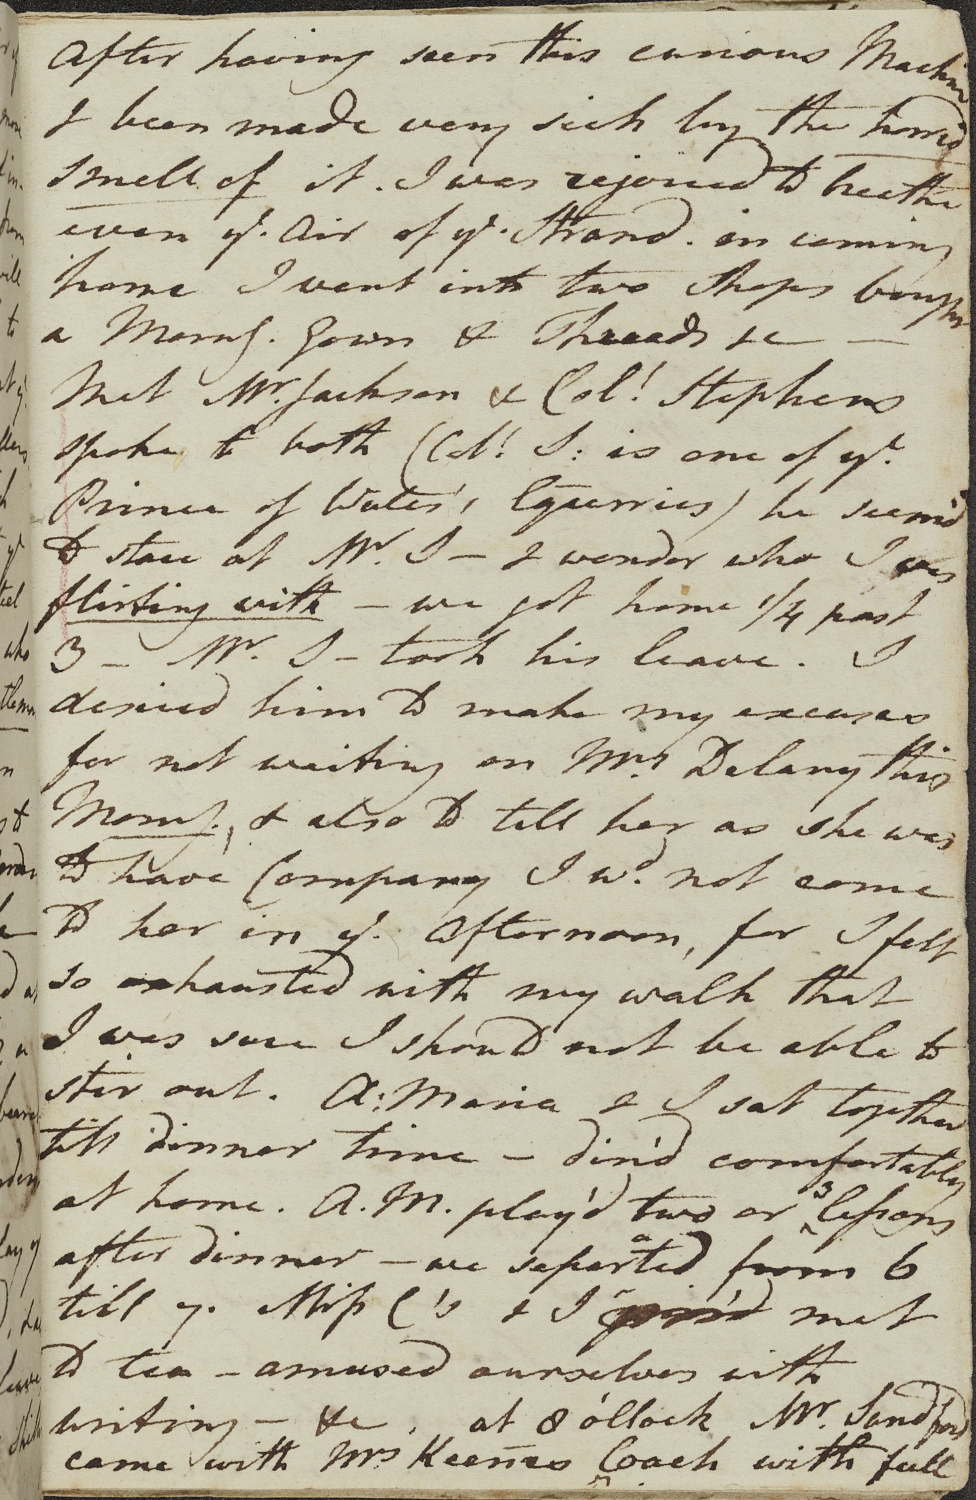 After having seen this curious Machine
& been made very sick by the horrid
smell of it. I was rejoiced to breathe
even ye. Air of ye. Strand. in coming
home I went into two shops bought
a Morng. Gown & Threads &c —
Met Mr. Jackson & Col! Stephens
spoke to both (Col! S: is one of ye.
Prince of Wales's Equerries) he seem'd
to stare at Mr. S — & wonder who I was
flirting with — we got home 1/4 past
3 — Mr. S — took his leave. I
desired him to make my excuses
for not waiting on Mrs. Delany this
Morng., & also to tell her as she was
to have Company I wd. not come
to her in ye. Afternoon, for I felt
so exhausted with my walk that
I was sure I should not be able to
stir out. A: Maria & I sat together
till dinner time — din'd comfortably
at home. A. M. play'd two or 3 lessons
after dinner — we separated from 6
till 7. Miss C's & I met
to tea — amused ourselves with
writing — &c. at 8 o'Clock Mr. Sandford
came with Mrs Keenes Coach with full